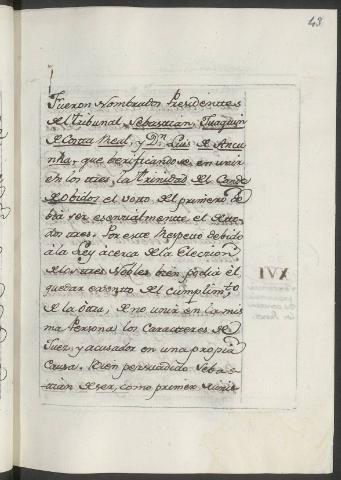 43
Fueron Nombrados Presidentes
del tribunal Sebastian, Joaquin
de Costa Real, y Dn. Luis de Ancu
nha, que berificandose en unir
en los tres, la trinidad del Conde
de obidos el voto del primero de
bia ser esenzialmente el de to-
dos tres. Por este Respeto debido
à la Ley àcerca de la Eleccion
de los tres Nobles bien podia èl
quedar esento del cumplimto
de la otra, de no unir en la mis
ma Persona los Caracteres de
Juez, y acusador en una propia
Causa. Bien persuadido Seba-
tian de ser, como primer
XVI